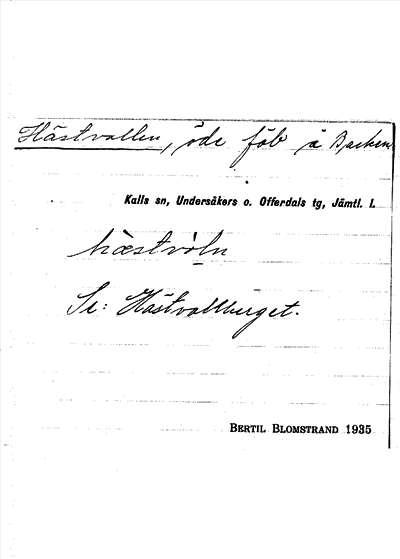 Hästvallen, öde fäb å Backen
Kalls sn, Undersåkers o. Offerdals tg, Jämtl. l.
hæstvòln
Se: Hästvallberget.
BERTIL BLOMSTRAND 1935